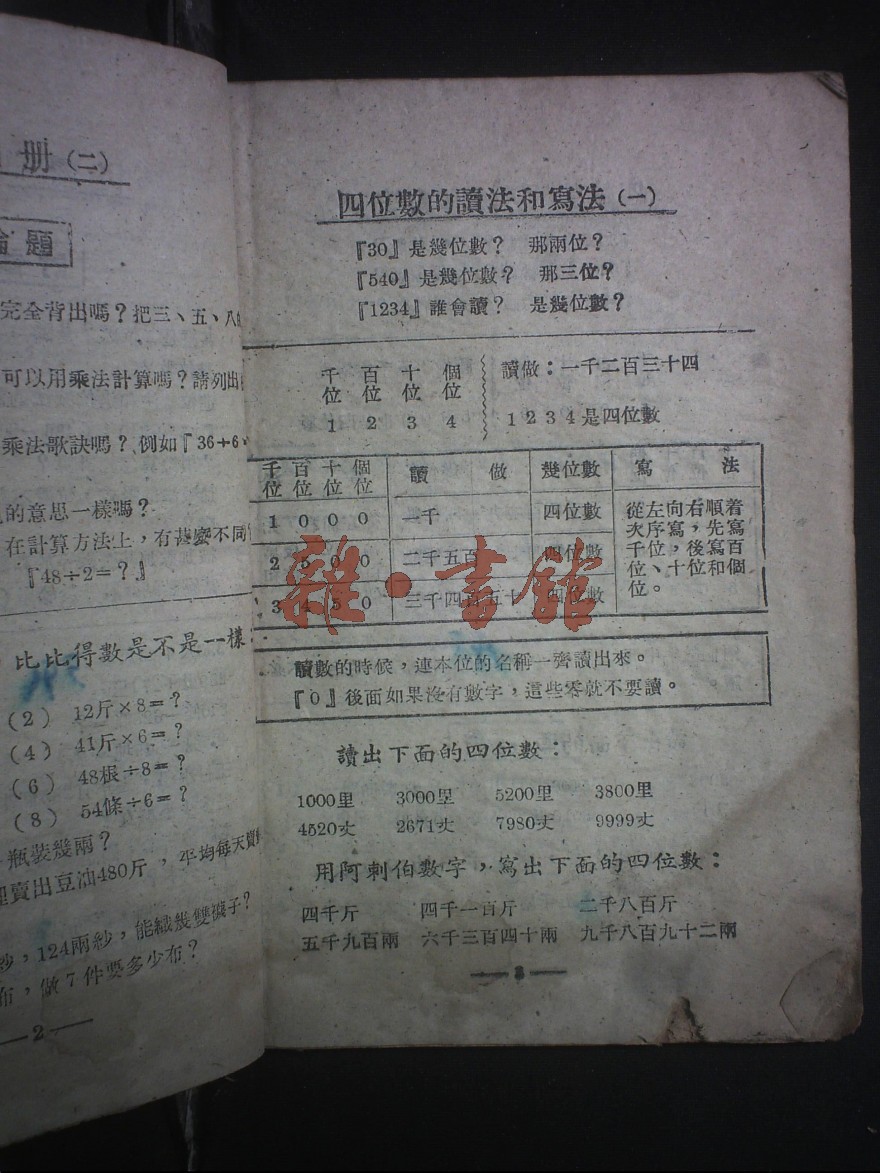 册(二)
題
完全背出嗎?把三、五、八
可以用乘法計算嗎?請列出
乘法歌訣嗎?例如『36÷6
的意思一樣嗎?
在計算方法上,有甚麼不同
『48÷2=?』
比比得數是不是一樣
(2) 12斤×8=?
(4) 41斤×6=?
(6) 48根÷8=?
(8) 54條÷6=?
瓶裝幾兩?
賣出豆油480斤,平均每天賣
紗,124兩紗,能織幾雙襪子?
布,做7件要多少布?
—2—
四位數的讀法和寫法(一)
『30』是幾位數? 那兩位?
『540』是幾位數? 那三位?
『1234』誰會讀? 是幾位數?
千位 百位 十位 個位 讀做:一千二百三十四
1 2 3 4 1234是四位數
千位 百位 十位 個位 讀做 幾位數 寫法
1 0 0 0 一千 四位數
2 5 0 0 二千五百 四位數
3 4 5 0 三千四百五十 四位數
從左向右順着
次序寫,先寫
千位,後寫百
位、十位和個
位。
讀數的時候,連本位的名稱一齊讀出來。
『0』後面如果沒有數字,這些零就不要讀。
讀出下面的四位數:
1000里 3000里 5200里 3800里
4520丈 2671丈 7980丈 9999丈
用阿剌伯數字,寫出下面的四位數:
四千斤 四千一百斤 二千八百斤
五千九百兩 六千三百四十兩 九千八百九十二兩
—3—
雜·書館